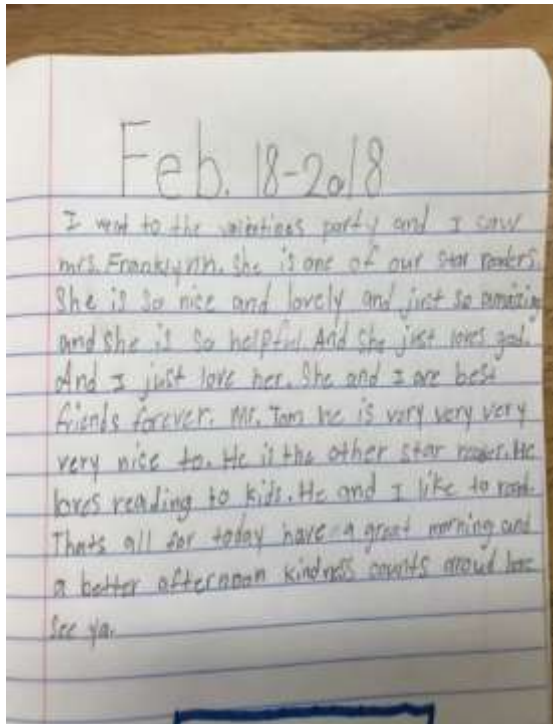 Feb. 18-2018
I went to the valentines party and I saw
mrs. Franklynn. She is one of our star readers.
She is so nice and lovely and just so amazing
and she is so helpful And she just loves god.
And I just love her. She and I are best
friends forever. Mr. Tom he is very very very
very nice to. He is the other star reader. He
loves reading to kids. He and I like to read.
Thats all for today have a great morning and
a better afternoon kindness counts aroud here
See ya.